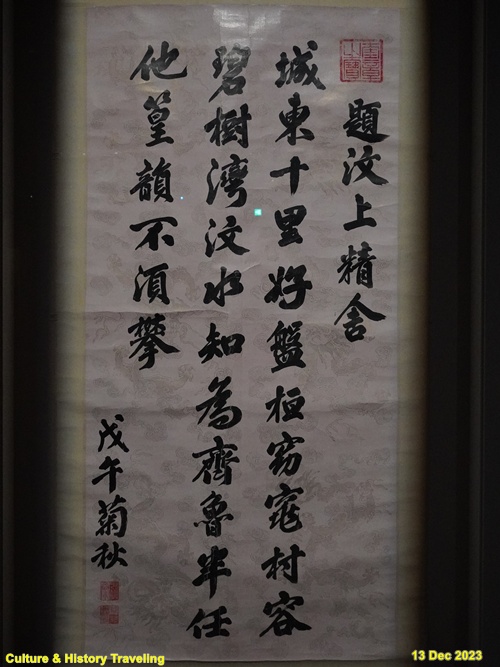 題汶上精舍
城東十里好盤桓窈窕村容
碧樹湾汶水知為齊魯半任
他篁韻不湏攀
戊午菊秋
Culture & History Traveling
13 Dec 2023